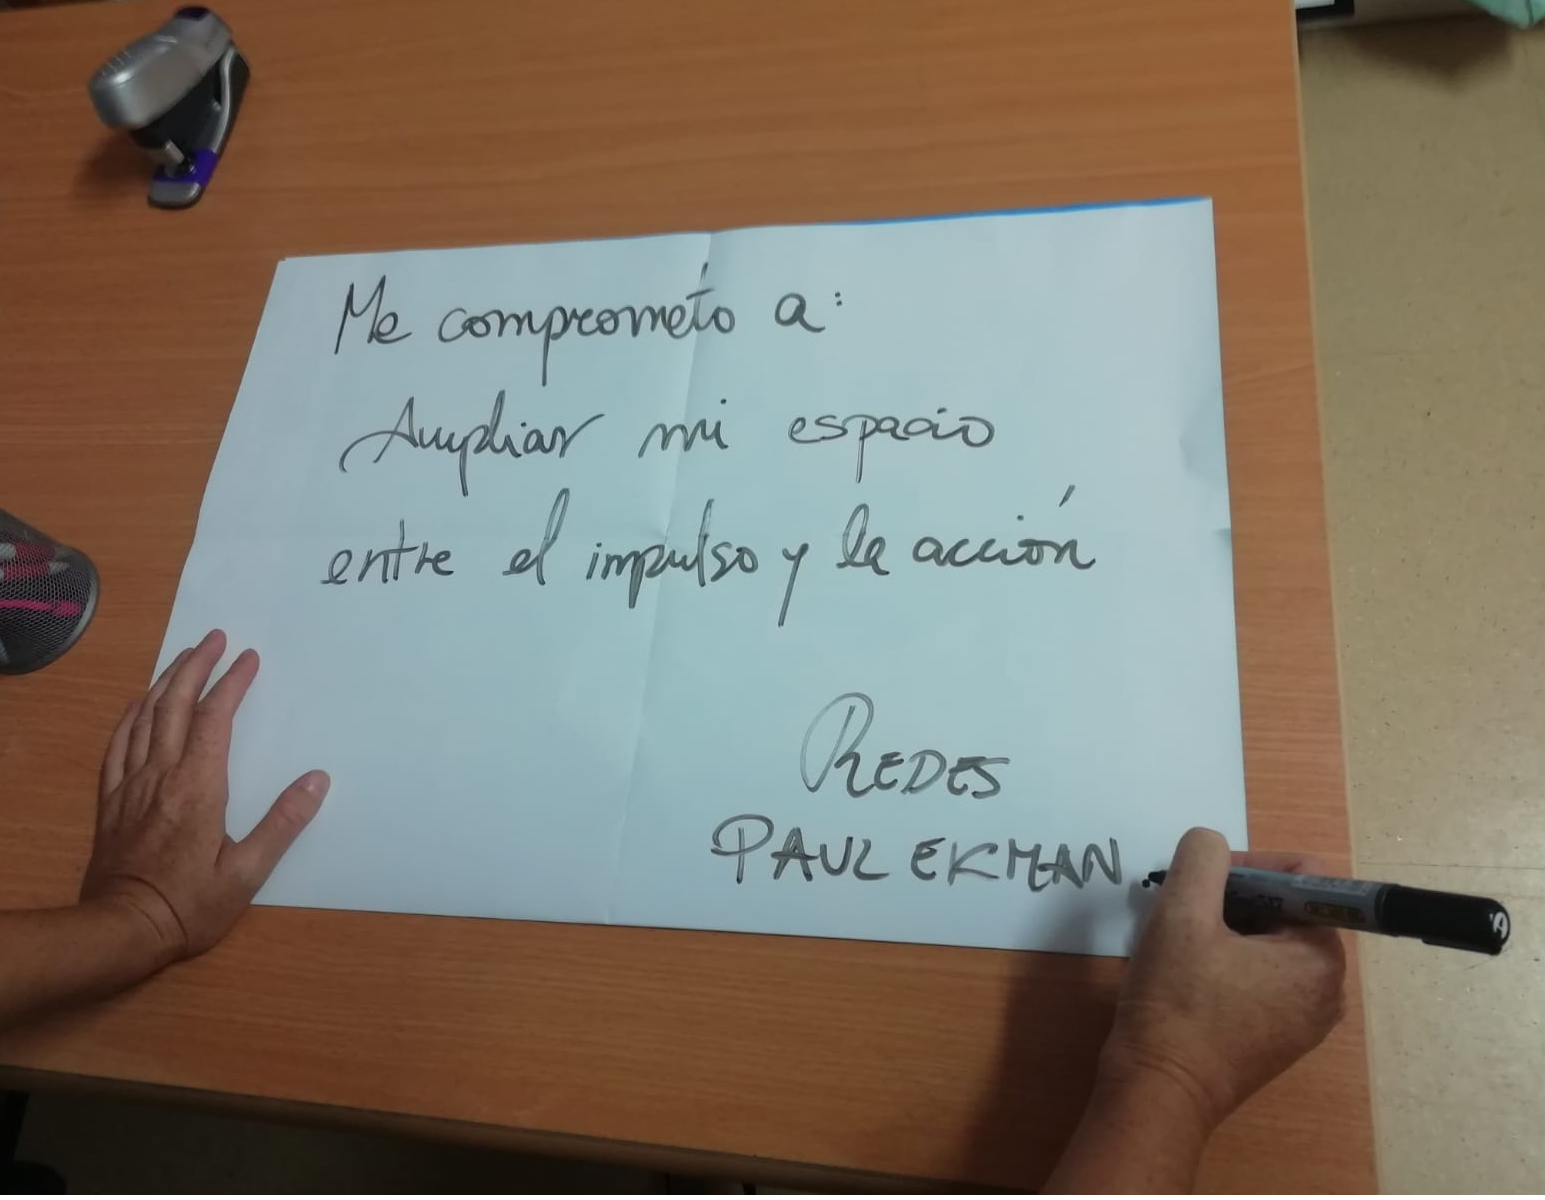 Me comprometo a:
Ampliar mi espacio
entre el impulso y la acción
REDES
PAUL EKMAN